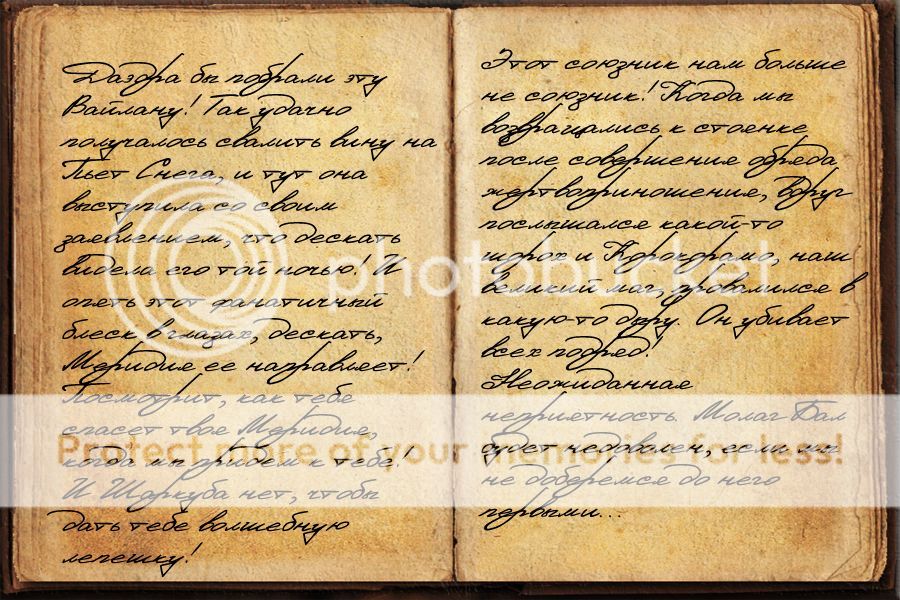 Даэдра бы побрали эту
Вайлану! Так удачно
получалось свалить вину на
Пьет Снега, и тут она
выступила со своим
заявлением, что дескать
видела его той ночью! И
опять этот фанатичный
блеск в глазах, дескать,
Меридия ее направляет!
Посмотрит, как тебе
спасет твое Меридия,
когда мы придем к тебе!
И Шаркуба нет, чтобы
дать тебе волшебную
лепешку!
Этот союзник нам больше
не союзник! Когда мы
возвращались к стоенке
после совершения обряда
жертвоприношения, вдруг
послышался какой-то
шорох и наш
великий маг, провалился в
какую-то дыру. Он убивает
всех подряд!
Неожиданная
неприятность. Молаг Бал
будет недоволен, если мы
не доберемся до него
первыми...
photobucket
Protect more of your memories for less!